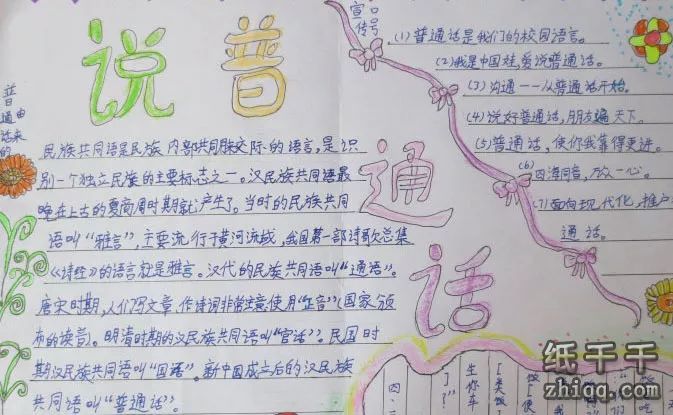 说普通话
普通话的由来
民族共同语是民族内部共同用来交际的语言,是识
别一个独立民族的主要标志之一。汉民族共同语最
晚在上古的夏商周时期就产生了。当时的民族共同
语叫“雅言”,主要流行于黄河流域,我国第一部诗歌总集
《诗经》的语言就是雅言。汉代的民族共同语叫“通语”。
唐宋时期,人们写文章、作诗词非常注意使用“正音”(国家颁
布的读音)。明清时期的汉民族共同语叫“官话”。民国时
期汉民族共同语叫“国语”。新中国成立后的汉民族
共同语叫“普通话”。
宣传口号
(1)普通话是我们的校园语言。
(2)我是中国娃,爱说普通话。
(3)沟通——从普通话开始。
(4)说好普通话,朋友遍天下。
(5)普通话,使你我靠得更近。
(6)四海同音,万众一心。
(7)面向现代化,推广
普通话。
纸千千
zhiqq.com